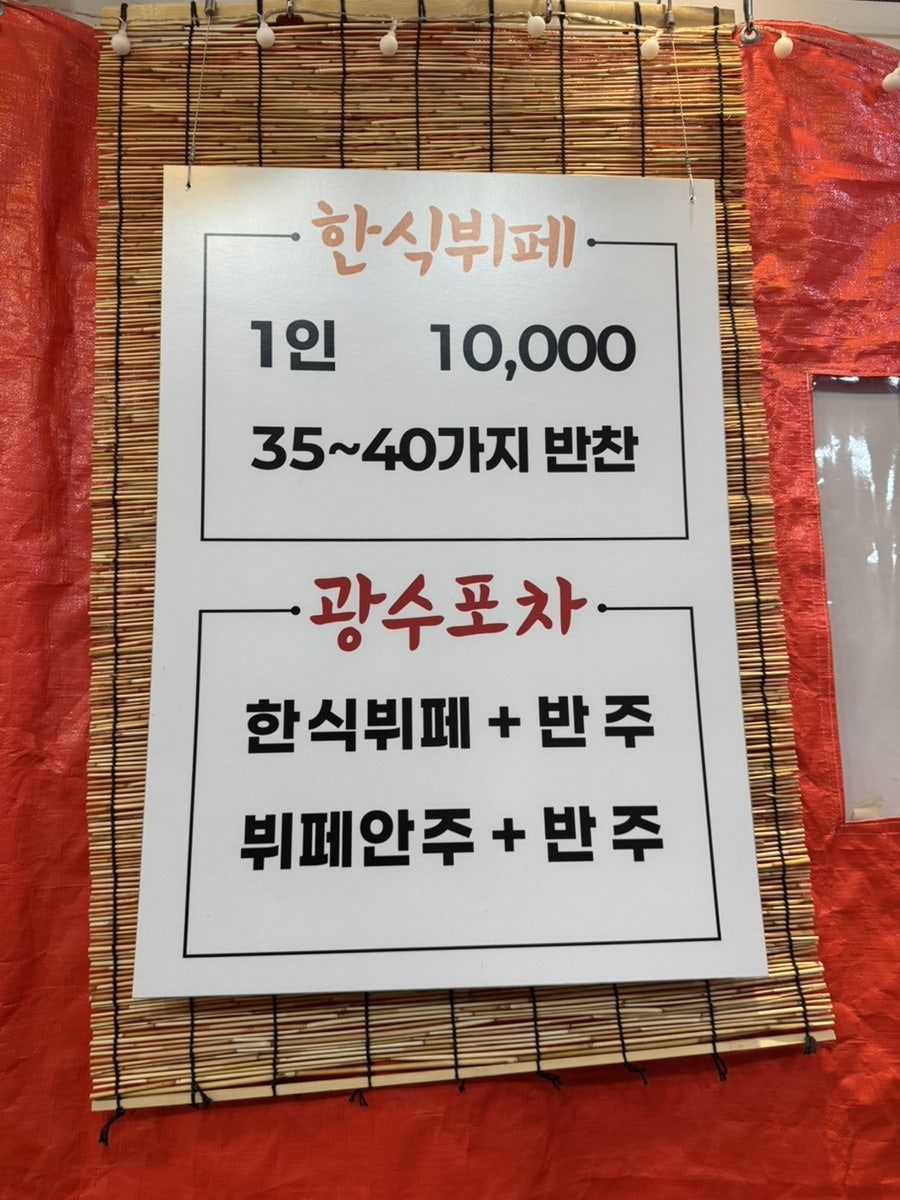 한식뷔페
1인 10,000
35~40가지 반찬
광수포차
한식뷔페 + 반 주
뷔페안주 + 반 주